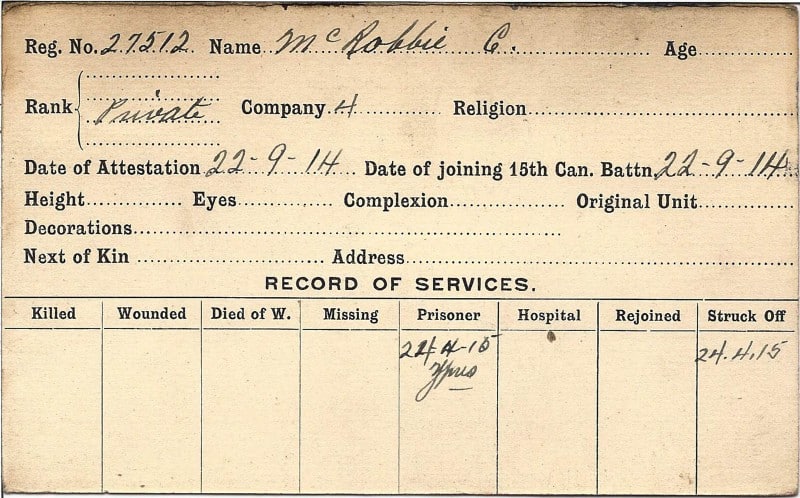 Reg. No. 27512 Name McRobbie C. Age
Rank Private Company 4 Religion
Date of Attestation 22-9-14 Date of joining 15th Can. Battn. 22-9-14
Height Eyes Complexion Original Unit
Decorations
Next of Kin Address
RECORD OF SERVICES.
Killed Wounded Died of W. Missing Prisoner Hospital Rejoined Struck Off
24-4-15 24.4.15
Ypres